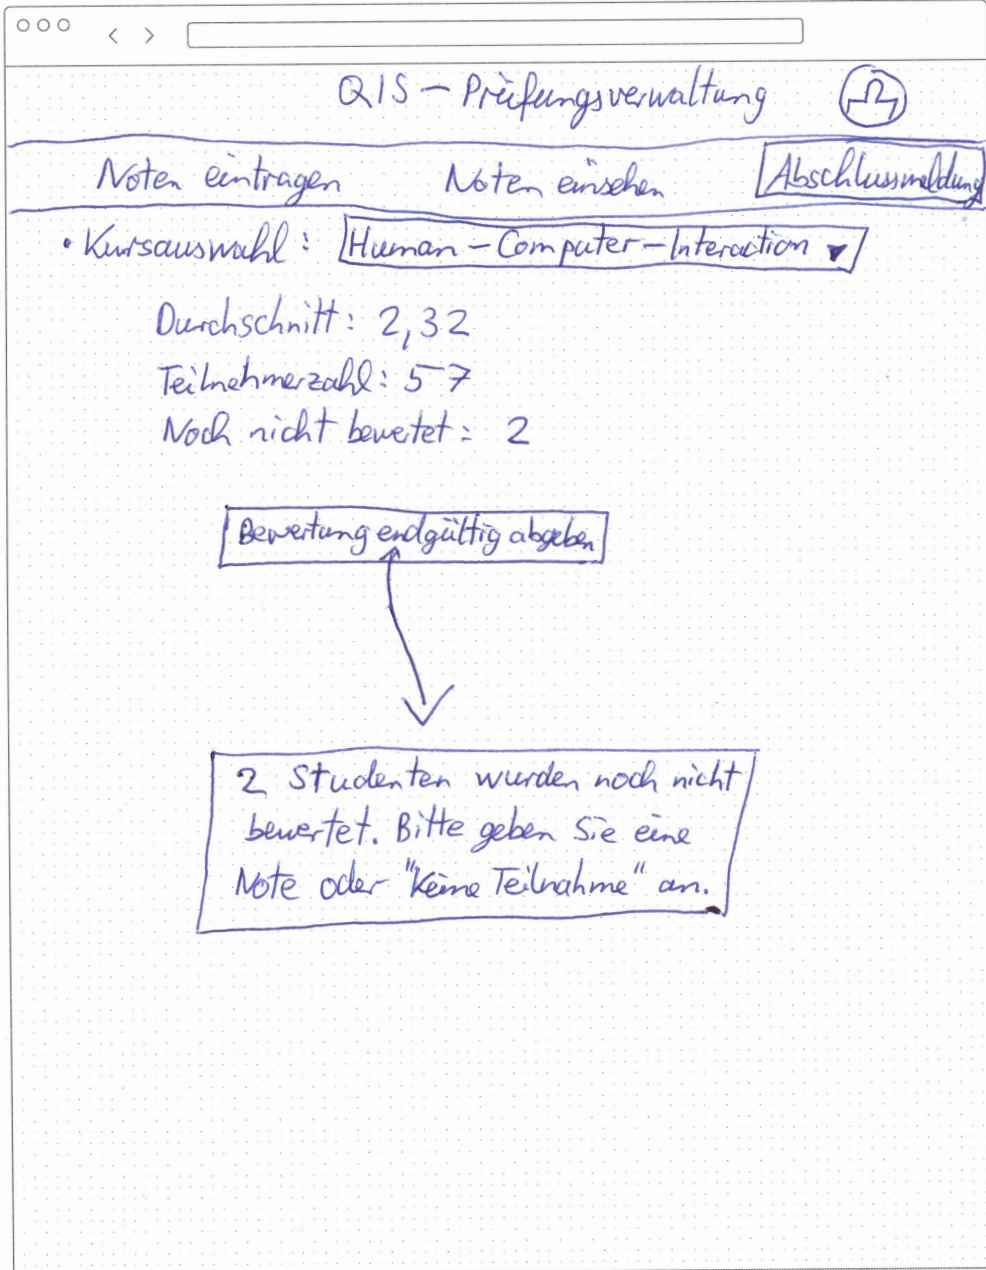 QIS – Prüfungsverwaltung
Noten eintragen Noten einsehen Abschlussmeldung
• Kursauswahl: Human-Computer-Interaction ▼
Durchschnitt: 2,32
Teilnehmerzahl: 57
Noch nicht bewertet: 2
Bewertung endgültig abgeben
2 Studenten wurden noch nicht
bewertet. Bitte geben Sie eine
Note oder "Keine Teilnahme" an.